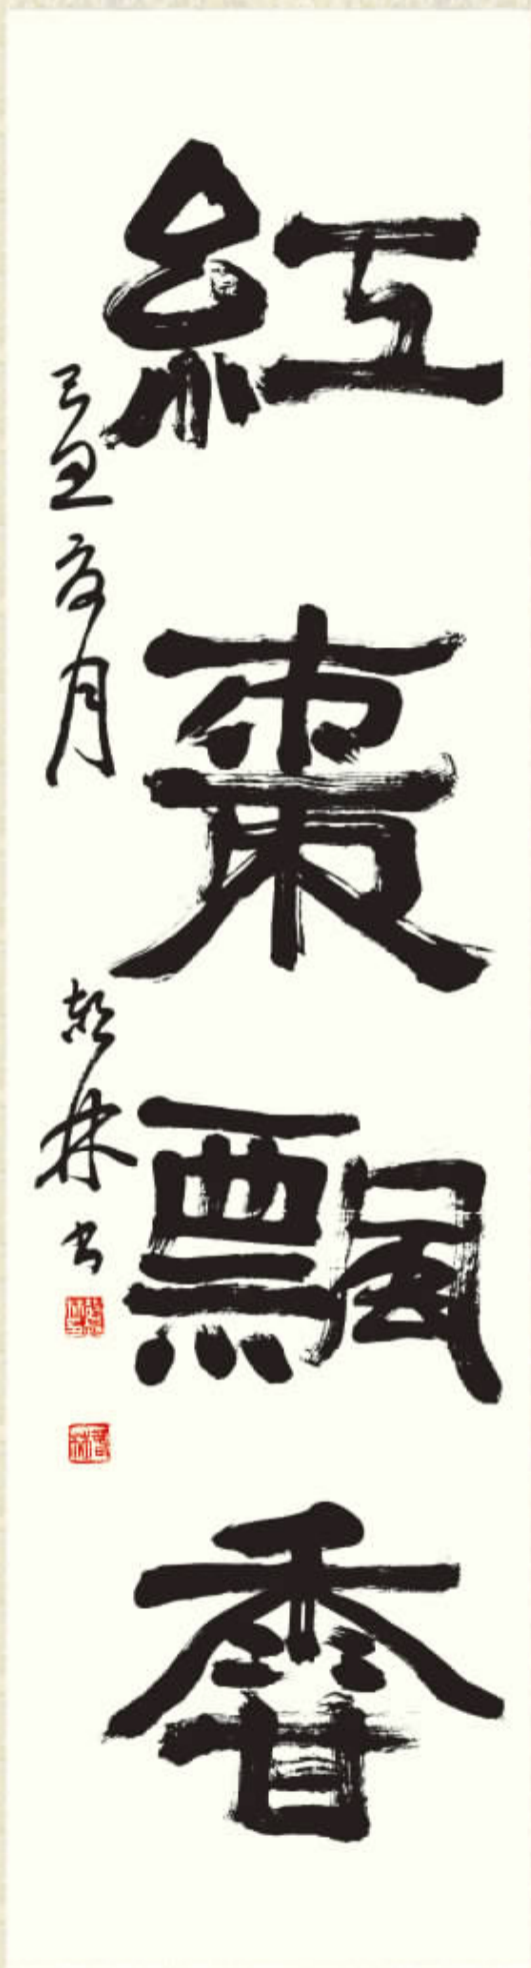 紅棗飄香
己丑夏月 林书